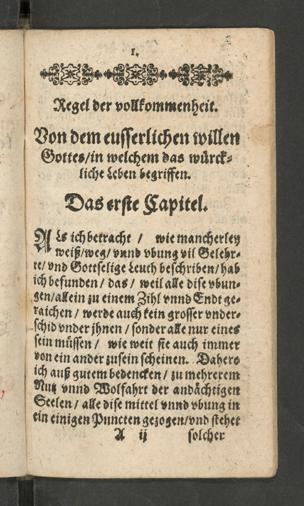 1.
Regel der vollkommenheit.
Von dem eusserlichen willen
Gottes/in welchem das würck-
liche Leben begriffen.
Das erste Capitel.
Als ich betracht / wie mancherley
weiß/weg/vnnd vbung vil Gelehr-
te/vnd Gottselige Leuth beschriben/hab
ich befunden/das/weil alle dise vbun-
gen/allein zu einem Zihl vnnd Endt ge-
raichen/werde auch kein grosser vnder-
schid vnder jhnen/sonder alle nur eines
sein müssen/wie weit sie auch immer
von ein ander zusein scheinen. Dahero
ich auß gutem bedencken/zu mehrerem
Nutz vnnd Wolfahrt der andächtigen
Seelen/alle dise mittel vnnd vbung in
ein einigen Puncten gezogen/vnd stehet
A ij solcher